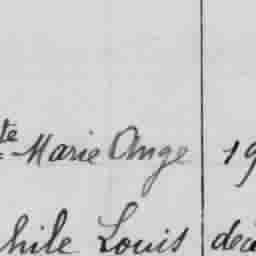 te Marie Ange 19
hile Louis déc